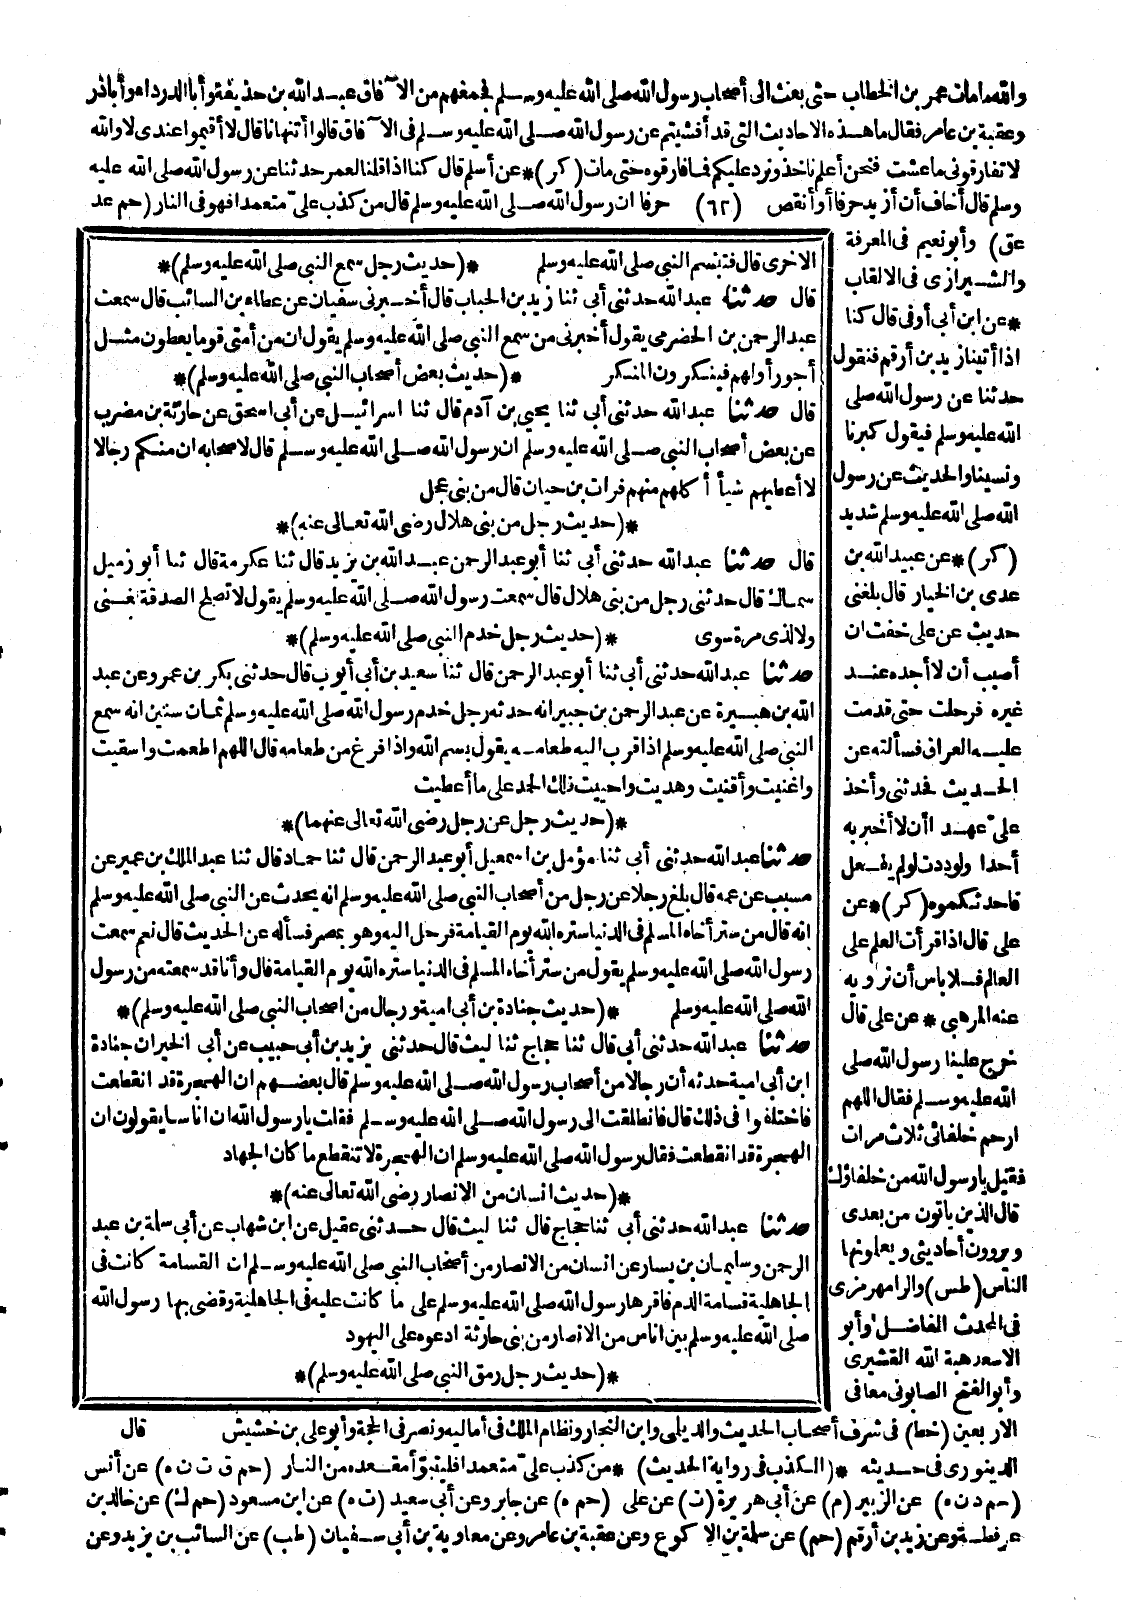 والله مامات عمر بن الخطاب حتى بعث الى أصحاب رسول الله صلى الله عليه وسلم فجمعهم من الآفاق عبد الله بن حذيفة وأبا الدرداء وأباذر
وعقبة بن عامر فقال ما هذه الاحاديث التى قد أفشيتم عن رسول الله صلى الله عليه وسلم فى الآفاق قالوا أتنهانا قال لا أقيموا عندى لا والله
لا تفارقونى ما عشت فنحن أعلم نأخذ ونرد عليكم فما فارقوه حتى مات (كر) * عن أسلم قال كنا اذا قلنا لعمر حدثنا عن رسول الله صلى الله عليه
وسلم قال أخاف أن أزيد حرفا أو أنقص (٦٢) حرفا ان رسول الله صلى الله عليه وسلم قال من كذب علىّ متعمدا فهو فى النار (حم عد
عق) وأبو نعيم فى المعرفة
والشيرازى فى الالقاب
* عن ابن أبى أوفى قال كنا
اذا أتينا زيد بن أرقم فنقول
حدثنا عن رسول الله صلى
الله عليه وسلم فيقول كبرنا
ونسينا والحديث عن رسول
الله صلى الله عليه وسلم شديد
(كر) * عن عبيد الله بن
عدى بن الخيار قال بلغنى
حديث عن على خفت ان
أصيب أن لا أجده عند
غيره فرحلت حتى قدمت
عليه العراق فسألته عن
الحديث فحدثنى وأخذ
علىّ عهدا أن لا أخبر به
أحدا ولوددت لو لم يفعل
فاحدثكموه (كر) * عن
على قال اذا قرأت العلم على
العالم فلا باس أن ترويه
عنه المرهبى * عن على قال
خرج علينا رسول الله صلى
الله عليه وسلم فقال اللهم
ارحم خلفائى ثلاث مرات
فقيل يا رسول الله من خلفاؤك
قال الذين يأتون من بعدى
ويروون أحاديثى ويعلونها
الناس (طس) والرامهرمزى
فى المحدث الفاضل وأبو
الاسعد هبة الله القشيرى
وأبو الفتح الصابونى معافى
الاخرى قال فتبسم النبى صلى الله عليه وسلم *(حديث رجل سمع النبى صلى الله عليه وسلم)*
قال حدثنا عبد الله حدثنى أبى ثنا زيد بن الحباب قال أخبرنى سفيان عن عطاء بن السائب قال سمعت
عبد الرحمن بن الحضرمى يقول أخبرنى من سمع النبى صلى الله عليه وسلم يقول ان من أمتى قوما يعطون مثل
أجور أولهم فينكرون المنكر *(حديث بعض أصحاب النبى صلى الله عليه وسلم)*
قال حدثنا عبد الله حدثنى أبى ثنا يحيى بن آدم قال ثنا اسرائيل عن أبى اسحق عن حارثة بن مضرب
عن بعض أصحاب النبى صلى الله عليه وسلم ان رسول الله صلى الله عليه وسلم قال لاصحابه ان منكم رجالا
لا أعطيهم شيأ أكلهم منهم فرات بن حيان قال من بنى عجل
*(حديث رجل من بنى هلال رضى الله تعالى عنه)*
قال حدثنا عبد الله حدثنى أبى ثنا أبو عبد الرحمن عبد الله بن يزيد قال ثنا عكرمة قال ثنا أبو زميل
سماك قال حدثنى رجل من بنى هلال قال سمعت رسول الله صلى الله عليه وسلم يقول لا تصلح الصدقة لغنى
ولا لذى مرة سوى *(حديث رجل خدم النبى صلى الله عليه وسلم)*
حدثنا عبد الله حدثنى أبى ثنا أبو عبد الرحمن قال ثنا سعيد بن أبى أيوب قال حدثنى بكر بن عمرو عن عبد
الله بن هبيرة عن عبد الرحمن بن جبير انه حدثه رجل خدم رسول الله صلى الله عليه وسلم ثمان سنين انه سمع
النبى صلى الله عليه وسلم اذا قرب اليه طعامه يقول بسم الله واذا فرغ من طعامه قال اللهم اطعمت واسقيت
واغنيت وأقنيت وهديت واحييت فلك الحمد على ما أعطيت
*(حديث رجل عن رجل رضى الله تعالى عنهما)*
حدثنا عبد الله حدثنى أبى ثنا مؤمل بن اسمعيل أبو عبد الرحمن قال ثنا حماد قال ثنا عبد الملك بن عمير عن
مسيب عن عمه قال بلغ رجلا عن رجل من أصحاب النبى صلى الله عليه وسلم انه يحدث عن النبى صلى الله عليه وسلم
انه قال من ستر أخاه المسلم فى الدنيا ستره الله يوم القيامة فرحل اليه وهو بمصر فسأله عن الحديث قال نعم سمعت
رسول الله صلى الله عليه وسلم يقول من ستر أخاه المسلم فى الدنيا ستره الله يوم القيامة قال وأنا قد سمعته من رسول
الله صلى الله عليه وسلم *(حديث جنادة بن أبى امية ورجال من اصحاب النبى صلى الله عليه وسلم)*
حدثنا عبد الله حدثنى أبى قال ثنا حجاج ثنا ليث قال حدثنى يزيد بن أبى حبيب عن أبى الخير ان جنادة
ابن أبى امية حدثه أن رجالا من أصحاب رسول الله صلى الله عليه وسلم قال بعضهم ان الهجرة قد انقطعت
فاختلفوا فى ذلك قال فانطلقت الى رسول الله صلى الله عليه وسلم فقلت يا رسول الله ان اناسا يقولون ان
الهجرة قد انقطعت فقال رسول الله صلى الله عليه وسلم ان الهجرة لا تنقطع ما كان الجهاد
*(حديث انسان من الانصار رضى الله تعالى عنه)*
حدثنا عبد الله حدثنى أبى ثنا حجاج قال ثنا ليث قال حدثنى عقيل عن ابن شهاب عن أبى سلمة بن عبد
الرحمن وسليمان بن يسار عن انسان من الانصار من أصحاب النبى صلى الله عليه وسلم ان القسامة كانت فى
الجاهلية قسامة الدم فاقرها رسول الله صلى الله عليه وسلم على ما كانت عليه فى الجاهلية وقضى بها رسول الله
صلى الله عليه وسلم بين اناس من الانصار من بنى حارثة ادعوه على اليهود
*(حديث رجل رمق النبى صلى الله عليه وسلم)*
الاربعين (خط) فى شرف أصحاب الحديث والديلمى وابن النجار ونظام الملك فى أماليه ونصر فى الحجة وأبو على بن خشيش قال
الدينورى فى حديثه *(الكذب فى رواية الحديث)* من كذب علىّ متعمدا فليتبوّأ مقعده من النار (حم ق ت ن ه) عن أنس
(حم د ن ه) عن الزبير (م) عن أبى هريرة (ت) عن على (حم ه) عن جابر وعن أبى سعيد (ت ه) عن ابن مسعود (حم ك) عن خالد بن
عرفطة وعن زيد بن أرقم (حم) عن سلمة بن الاكوع وعن عقبة بن عامر وعن معاوية بن أبى سفيان (طب) عن السائب بن يزيد وعن